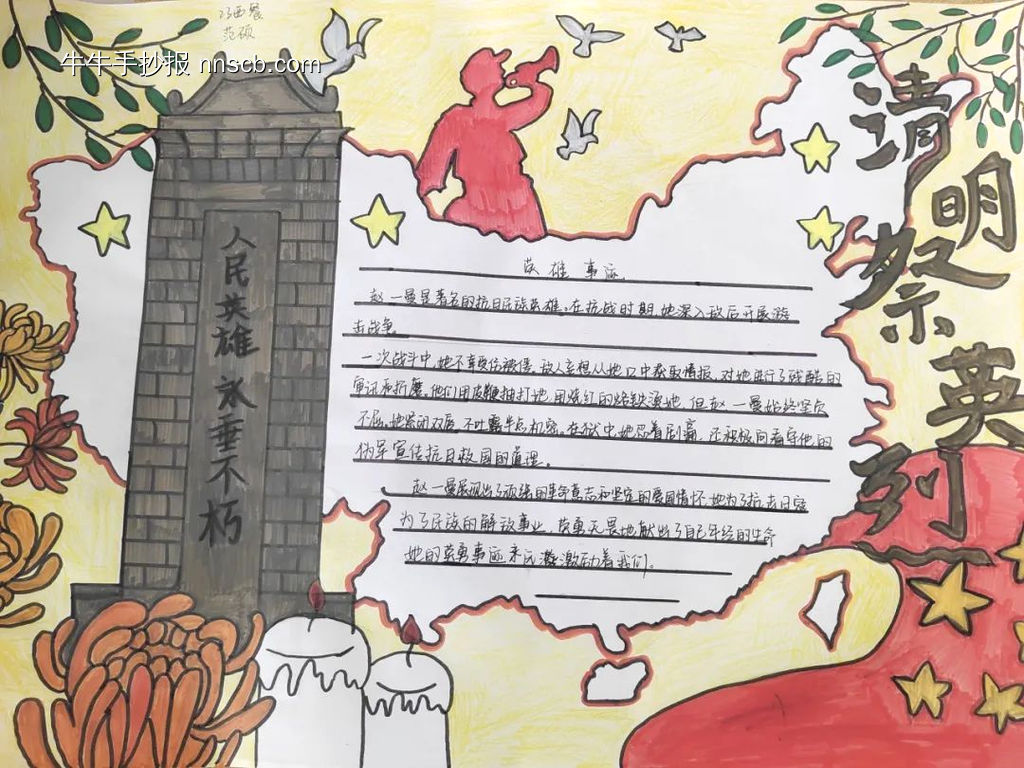 范硕
牛牛手抄报 nnscb.com
清明祭英烈
人民英雄永垂不朽
英雄事迹
赵一曼是著名的抗日民族英雄。在抗战时期,她深入敌后开展游
击战争。
一次战斗中,她不幸受伤被俘,敌人妄想从她口中获取情报,对她进行了残酷的
审讯和折磨。他们用皮鞭抽打她,用烧红的烙铁烫她,但赵一曼始终坚贞
不屈,她紧闭双唇,不吐露半点机密。在狱中,她忍着剧痛,还积极向看守他的
伪军宣传抗日救国的道理。
赵一曼展现出了顽强的革命意志和坚定的爱国情怀,她为了抗击日寇
为了民族的解放事业,英勇无畏地献出了自己年轻的生命
她的英勇事迹永远激励着我们。